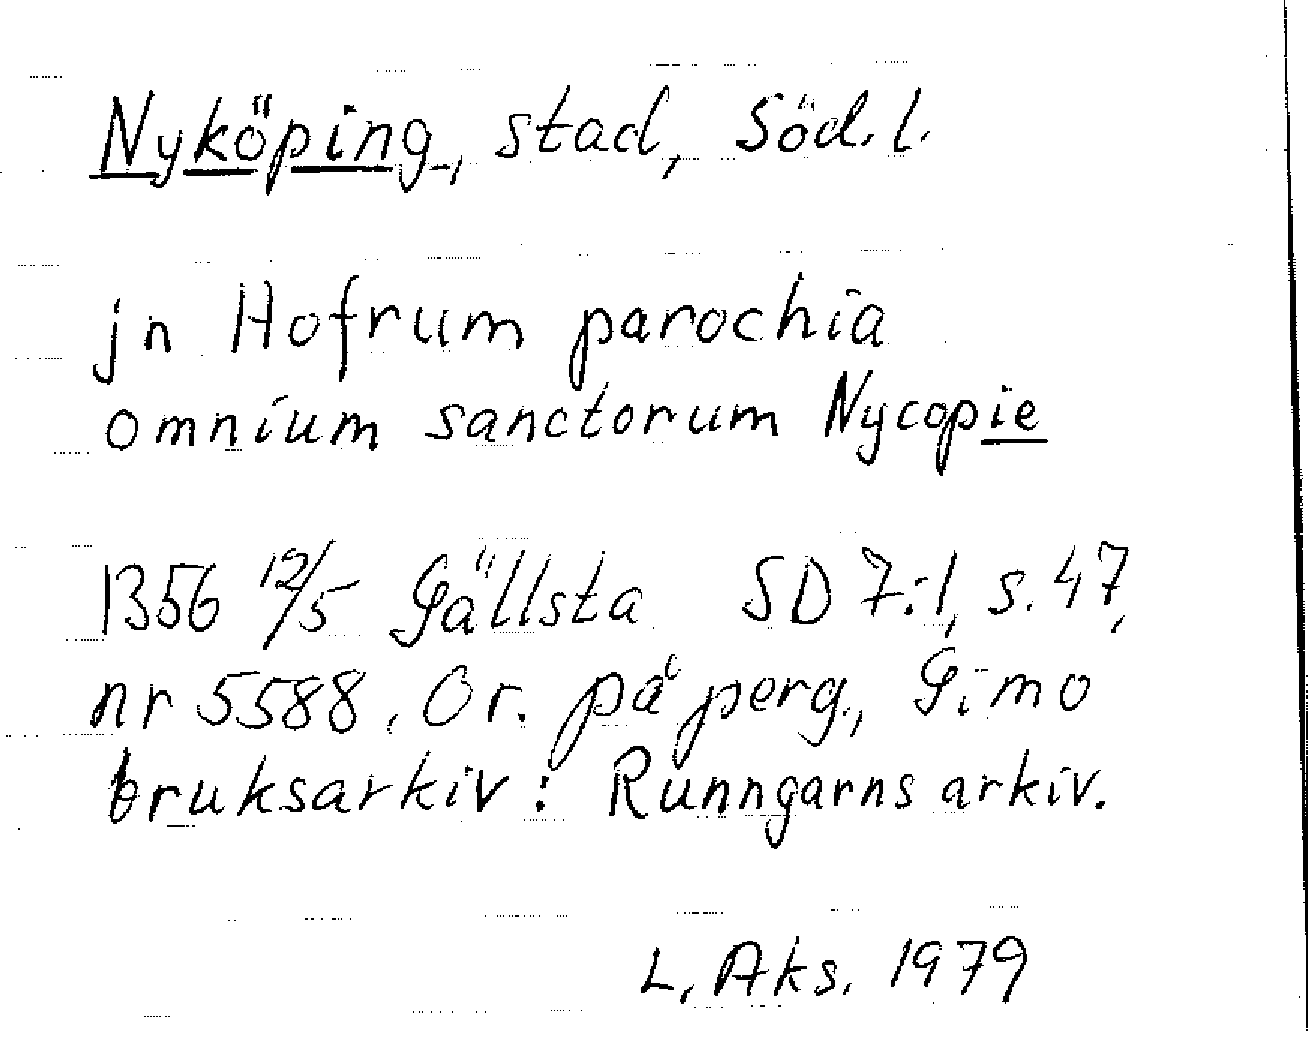 Nyköping, stad, Söd. l.
jn Hofrum parochia
omnium sanctorum Nycopie
1356 12/5 Gällsta SD 7:1, s. 47,
nr 5588. Or. på perg., Gimo
bruksarkiv: Runngarns arkiv.
L. Aks. 1979